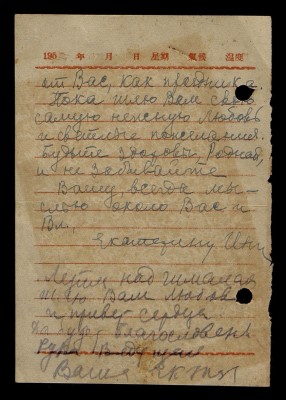 195 年 月 日 星期 氣候 溫度
от Вас, как праздника.
Пока шлю Вам свою
самую нежную любовь
и светлые пожелания.
Будьте здоровы, Родная,
и не забывайте
Вашу, всегда мы-
слью около Вас и
Вл.,
Екатерину Ин
Летим над Гималая
Шлю Вам Любовь
и привет сердца
благословен
Ваша